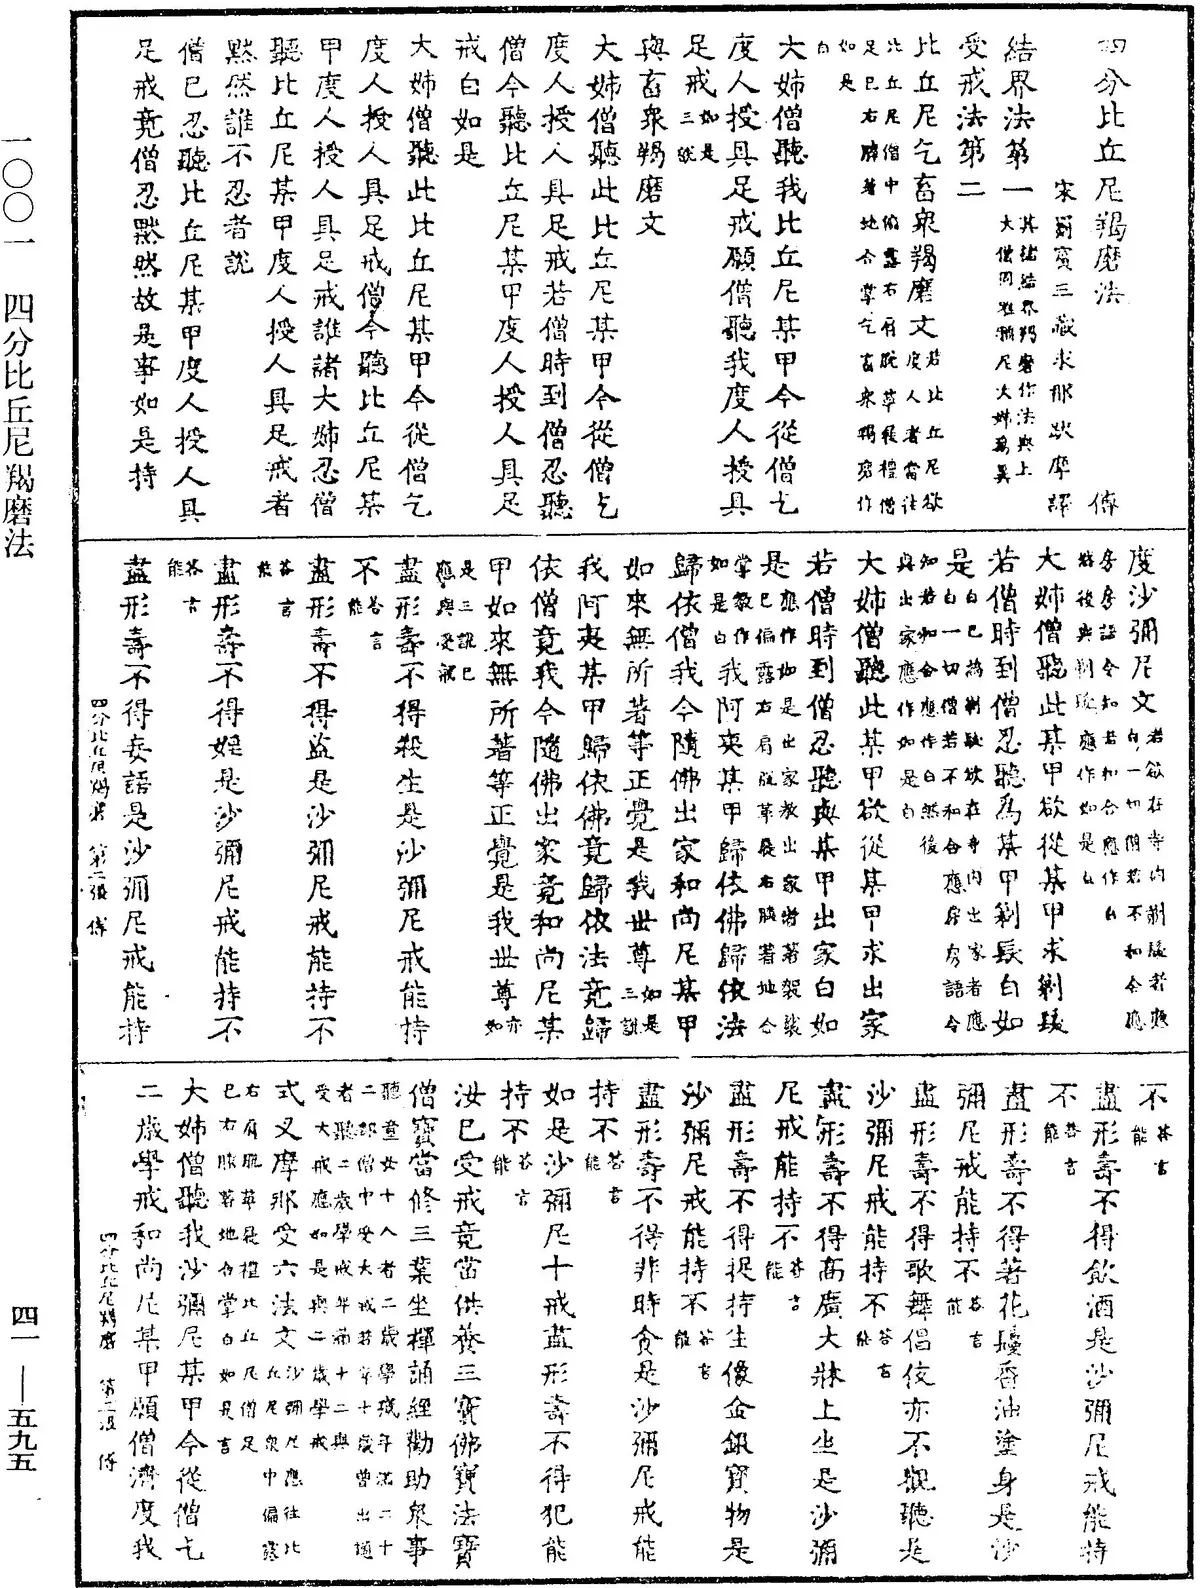 四分比丘尼羯磨法 傅
宋罽賓三藏求那跋摩譯
結界法第一其諸結界羯磨作法與上大僧同唯稱尼大姊為異
受戒法第二
比丘尼乞畜眾羯磨文若比丘尼欲度人者當往
比丘尼僧中偏露右肩脫革屣禮僧
足已右膝著地合掌乞畜眾羯磨作
如是
白
大姊僧聽我比丘尼某甲今從僧乞
度人授具足戒願僧聽我度人授具
足戒如是三說
與畜眾羯磨文
大姊僧聽此比丘尼某甲今從僧乞
度人授人具足戒若僧時到僧忍聽
僧今聽比丘尼某甲度人授人具足
戒白如是
大姊僧聽此比丘尼某甲今從僧乞
度人授人具足戒僧今聽比丘尼某
甲度人授人具足戒誰諸大姊忍僧
聽比丘尼某甲度人授人具足戒者
默然誰不忍者說
僧已忍聽比丘尼某甲度人授人具
足戒竟僧忍默然故是事如是持
度沙彌尼文若欲在寺內剃髮者應白一切僧若不和合應
房房語令知若和合應作白
然後與剃髮應作如是白
大姊僧聽此某甲欲從某甲求剃髮
若僧時到僧忍聽為某甲剃髮白如
是白已為剃髮欲在寺內出家者應白一切僧若不和合應房房語令
知若和合應作白然後
與出家應作如是白
大姊僧聽此某甲欲從某甲求出家
若僧時到僧忍聽與某甲出家白如
是應作如是出家教出家者著袈裟已偏露右肩脫革屣右膝著地合
掌教作如是白我阿夷某甲歸依佛歸依法
歸依僧我今隨佛出家和尚尼某甲
如來無所著等正覺是我世尊如是三說
我阿夷某甲歸依佛竟歸依法竟歸
依僧竟我今隨佛出家竟和尚尼某
甲如來無所著等正覺是我世尊亦如
是三說已
應與受戒
盡形壽不得殺生是沙彌尼戒能持
不答言能
盡形壽不得盜是沙彌尼戒能持不
答言能
盡形壽不得婬是沙彌尼戒能持不
答言能
盡形壽不得妄語是沙彌尼戒能持
四分比丘尼羯磨 第二張 傅
不答言能
盡形壽不得飲酒是沙彌尼戒能持
不答言能
盡形壽不得著花鬘香油塗身是沙
彌尼戒能持不答言能
盡形壽不得歌舞倡伎亦不觀聽是
沙彌尼戒能持不答言能
盡形壽不得高廣大牀上坐是沙彌
尼戒能持不答言能
盡形壽不得捉持生像金銀寶物是
沙彌尼戒能持不答言能
盡形壽不得非時食是沙彌尼戒能
持不答言能
如是沙彌尼十戒盡形壽不得犯能
持不答言能
汝已受戒竟當供養三寶佛寶法寶
僧寶當修三業坐禪誦經勸助眾事
聽童女十八者二歲學戒年滿二十
二部僧中受大戒若年十歲曾出適
者聽二歲學戒年滿十二與
受大戒應如是與二歲學戒
式叉摩那受六法文沙彌尼應往比丘尼眾中偏露
右肩脫革屣禮比丘尼僧足
已右膝著地合掌白如是言
大姊僧聽我沙彌尼某甲今從僧乞
二歲學戒和尚尼某甲願僧濟度我
四分比丘尼羯磨 第三張 傅
一〇〇一 四分比丘尼羯磨法
四一——五九五